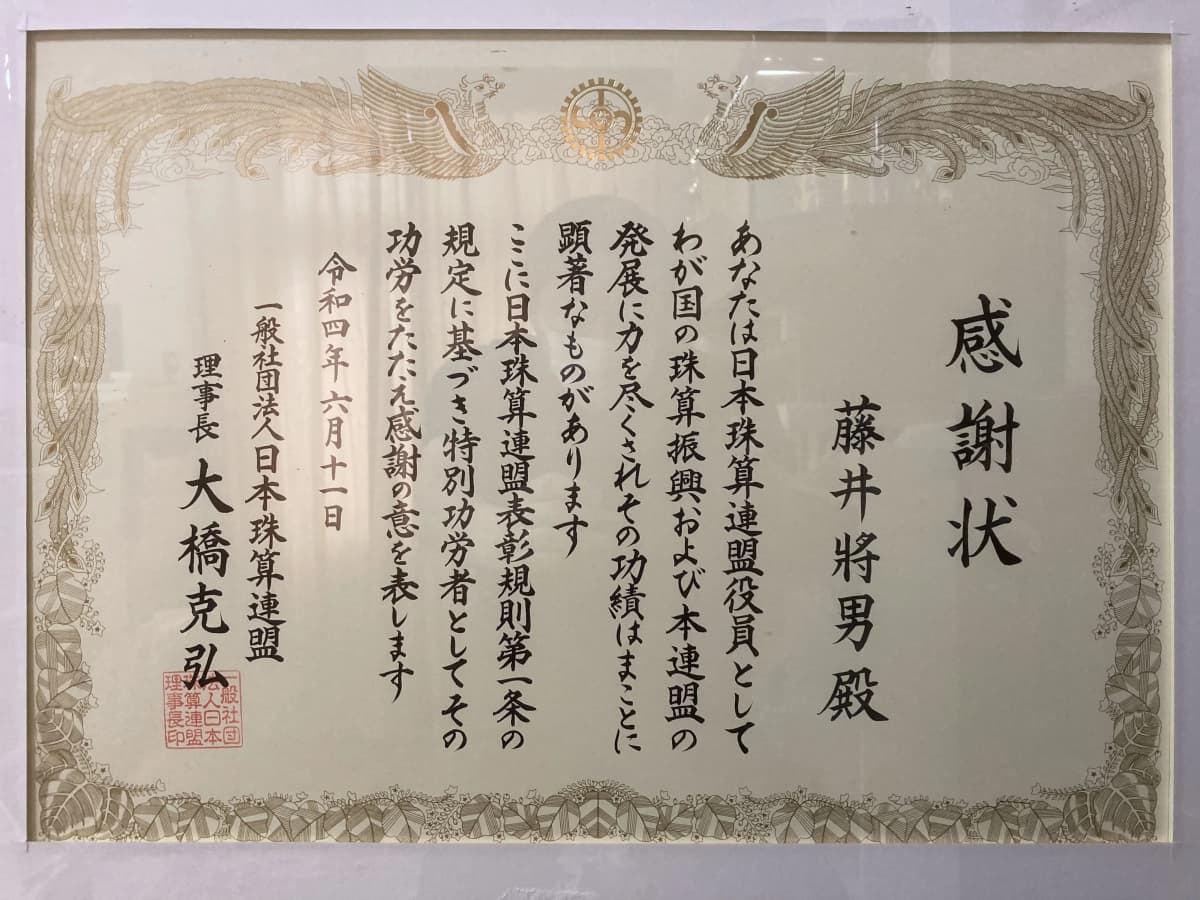 感謝状
藤井將男殿
あなたは日本珠算連盟役員として
わが国の珠算振興および本連盟の
発展に力を尽くされその功績はまことに
顕著なものがあります
ここに日本珠算連盟表彰規則第一条の
規定に基づき特別功労者としてその
功労をたたえ感謝の意を表します
令和四年六月十一日
一般社団法人日本珠算連盟
理事長 大橋克弘
一般社団
法人日本
珠算連盟
理事長印